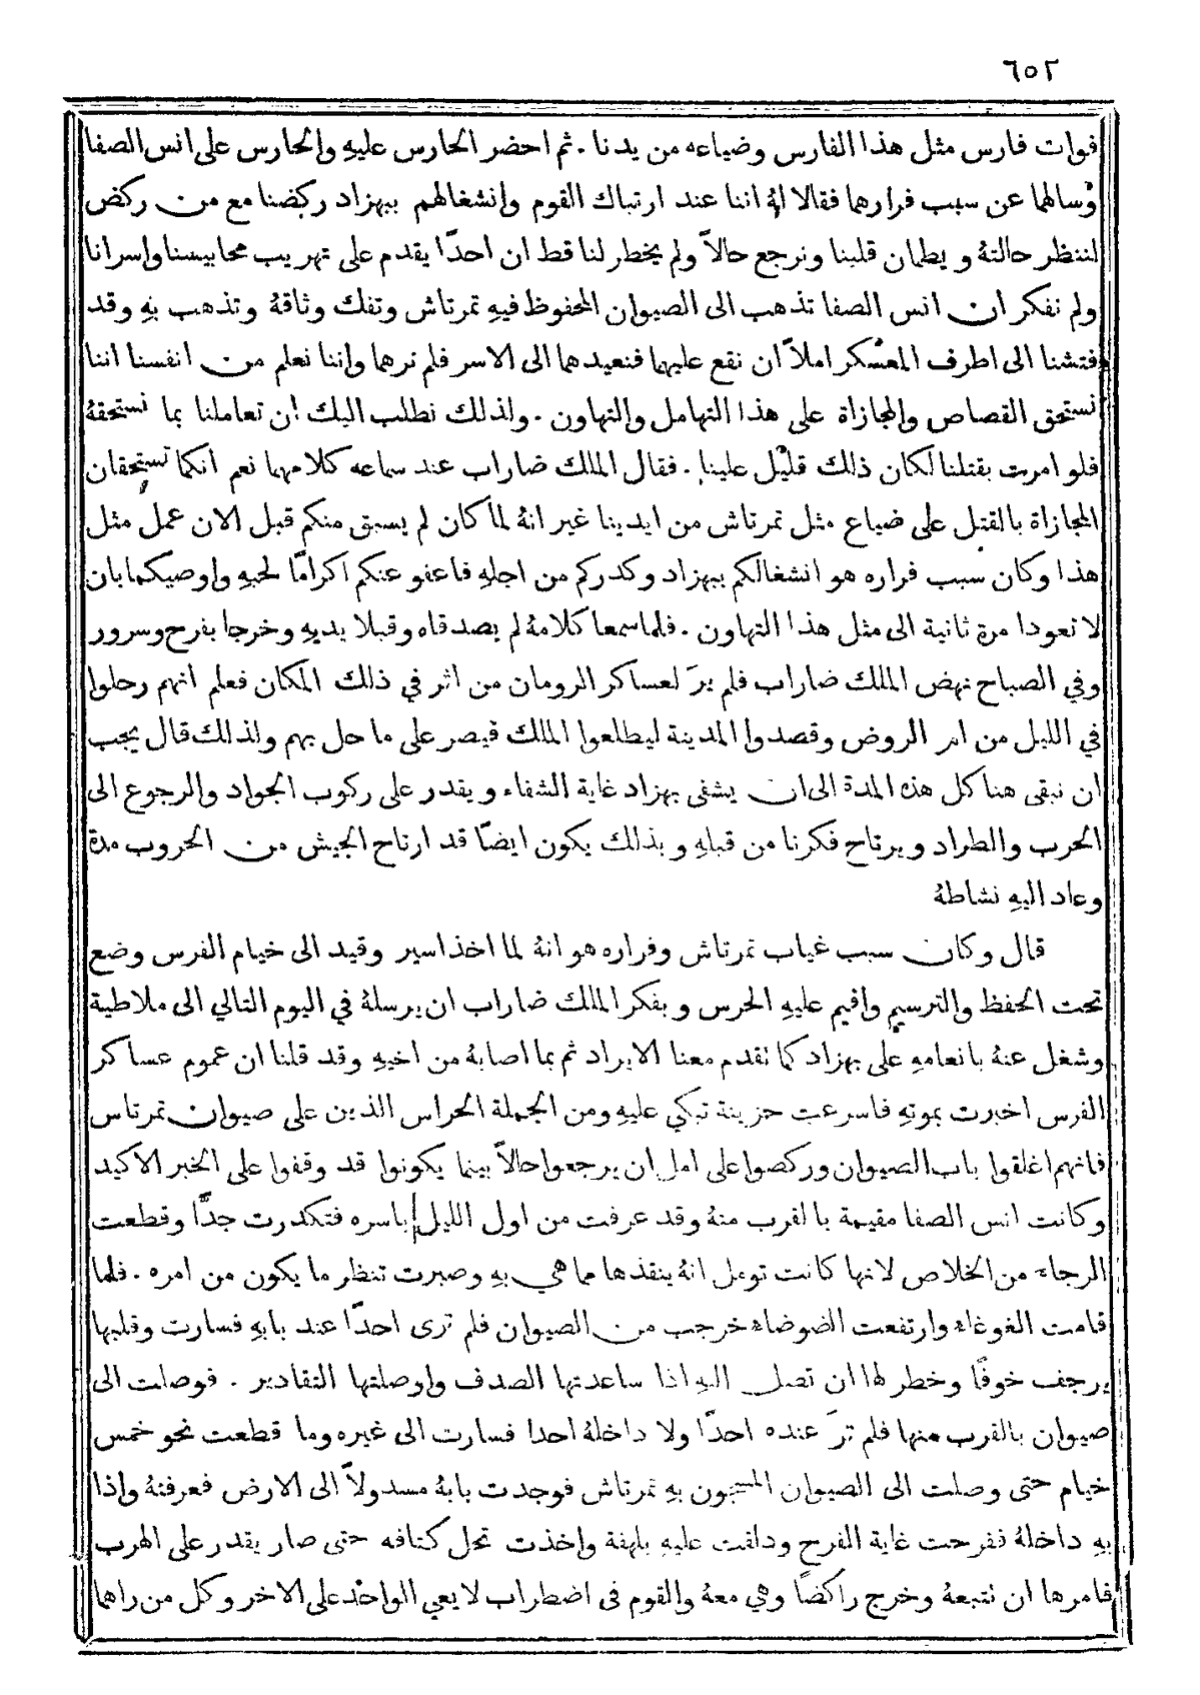 ٦٥٢
فوات فارس مثل هذا الفارس وضياعه من يدنا . ثم احضر الحارس عليهِ والحارس على انس الصفا
وسالهما عن سبب فرارهما فقالا لهُ اننا عند ارتباك القوم وانشغالهم ببهزاد ركضنا مع من ركض
لننظر حالتهُ ويطمان قلبنا ونرجع حالاً ولم يخطر لنا قط ان احدًا يقدم على تهريب محابيسنا واسرانا
ولم نفكر ان انس الصفا تذهب الى الصيوان المحفوظ فيهِ تمرتاش وتفك وثاقهُ وتذهب بهِ وقد
فتشنا الى اطرف المعسكر املاً ان نقع عليهما فنعيدهما الى الاسر فلم نرهما واننا نعلم من انفسنا اننا
نستحق القصاص والمجازاة على هذا التهامل والتهاون . ولذلك نطلب اليك ان تعاملنا بما نستحقهُ
فلو امرت بقتلنا لكان ذلك قليل علينا . فقال الملك ضاراب عند سماعه كلامهما نعم انكما تستحقان
المجازاة بالقتل على ضياع مثل تمرتاش من ايدينا غير انهُ لما كان لم يسبق منكم قبل الان عمل مثل
هذا وكان سبب فراره هو انشغالكم ببهزاد وكدركم من اجلهِ فاعفو عنكم اكرامًا لحبهِ واوصيكما بان
لا تعودا مرة ثانية الى مثل هذا التهاون . فلما سمعا كلامهُ لم يصدقاه وقبلا يديهِ وخرجا بفرح وسرور
وفي الصباح نهض الملك ضاراب فلم يرَ لعساكر الرومان من اثر في ذلك المكان فعلم انهم رحلوا
في الليل من امر الروض وقصدوا المدينة ليطلعوا الملك قيصر على ما حل بهم ولذلك قال يجب
ان نبقى هنا كل هذه المدة الى ان يشفى بهزاد غاية الشفاء ويقدر على ركوب الجواد والرجوع الى
الحرب والطراد ويرتاح فكرنا من قبلهِ وبذلك يكون ايضًا قد ارتاح الجيش من الحروب مدة
وعاد اليهِ نشاطهُ
قال وكان سبب غياب تمرتاش وفراره هو انهُ لما اخذ اسير وقيد الى خيام الفرس وضع
تحت الحفظ والترسيم واقيم عليهِ الحرس وبفكر الملك ضاراب ان يرسلهُ في اليوم التالي الى ملاطية
وشغل عنهُ بانعامهِ على بهزاد كما تقدم معنا الايراد ثم بما اصابهُ من اخيهِ وقد قلنا ان عموم عساكر
الفرس اخبرت بموتهِ فاسرعت حزينة تبكي عليهِ ومن الجملة الحراس الذين على صيوان تمرتاس
فانهم اغلقوا باب الصيوان وركضوا على امل ان يرجعوا حالاً بينما يكونوا قد وقفوا على الخبر الاكيد
وكانت انس الصفا مقيمة بالقرب منهُ وقد عرفت من اول الليل باسره فتكدرت جدًّا وقطعت
الرجاء من الخلاص لانها كانت تومل انهُ ينقذها مما هي بهِ وصبرت تنظر ما يكون من امره . فلما
قامت الغوغاء وارتفعت الضوضاء خرجب من الصيوان فلم ترى احدًا عند بابهِ فسارت وقلبها
يرجف خوفًا وخطر لها ان تصل اليهِ اذا ساعدتها الصدف واوصلتها التقادير . فوصلت الى
صيوان بالقرب منها فلم ترَ عنده احدًا ولا داخلهُ احدا فسارت الى غيره وما قطعت نحو خمس
خيام حتى وصلت الى الصيوان المسجون بهِ تمرتاش فوجدت بابهُ مسدولاً الى الارض فعرفتهُ واذا
بهِ داخلهُ ففرحت غاية الفرح ودلفت عليهِ بلهفة واخذت تحل كتافه حتى صار يقدر على الهرب
فامرها ان تتبعهُ وخرج راكضًا وهي معهُ والقوم في اضطراب لا يعي الواحد على الاخر وكل من راهما